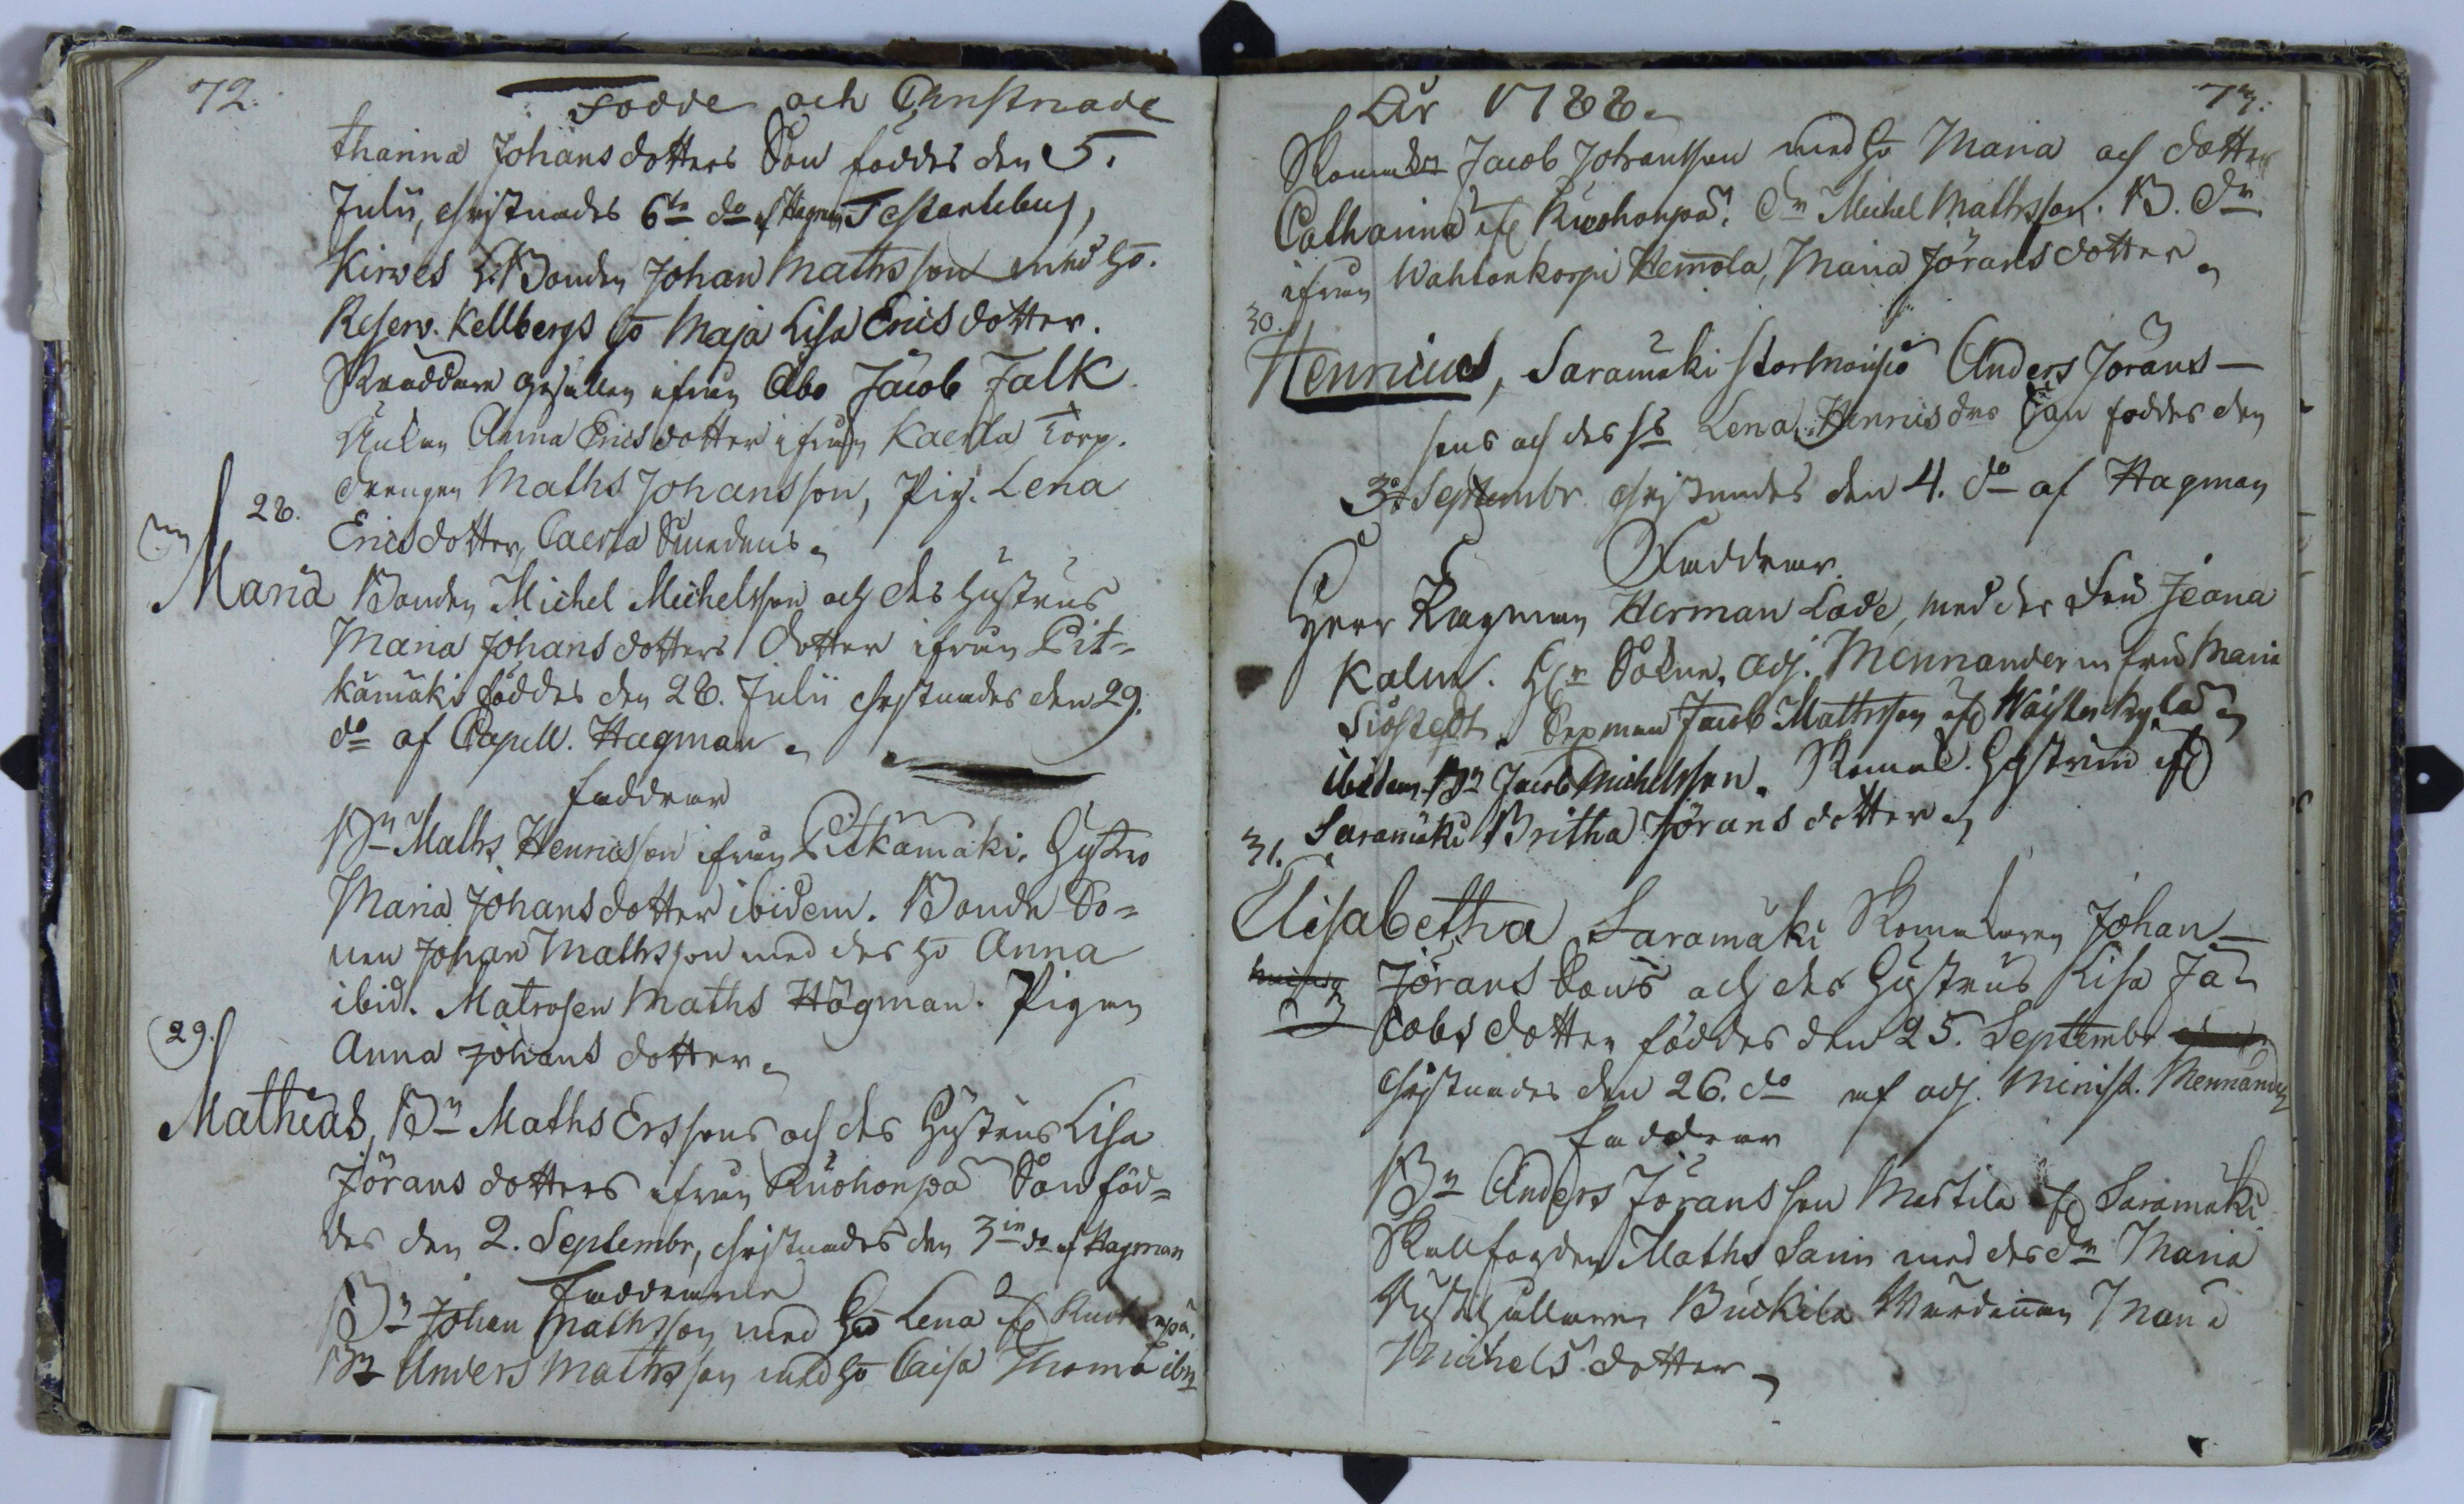 72.
Födde och Christnade
tharina Johansdotters Son föddes den 5.
Julii, christnades 6te do af Hagman Testantibus,
Kirves Bonden Johan Mathsson med Ho.
Reserv. Kellbergs Ho Maja Lisa Ericsdotter.
Skräddare gesällen ifrån Åbo Jacob Falk
Änkan Anna Ericsdotter ifrån Kaerla Torp.
28. drengen Maths Johansson, Pig. Lena
Ericsdotter, Caerla
Maria Bonden Michel Michelsson och des Hustrus
Maria Johansdotters dotter ifrån Pit=
kämäki föddes den 28. Julii christnades den 29.
do af Capell. Hagman
faddrar
Bn Maths Henricsson ifrån Pitkämäki. Hustro
Maria Johansdotter ibidem. Bonde So=
nen Johan Mathsson med des Ho Anna
ibid. Matrosen Maths Högman. Pigan
29. Anna Johans dotter
Mathias, Bn Maths Erssons och des Hustrus Lisa
Jörans dotters ifrån Ruohonpä Son föd=
des den 2. Septembr, christnades den 3in do af Hagman
Faddrarne
Bn Johan Mathsson med Ho Lena ifr Ruohonpä.
Bn Anders Mathsson med Ho Caisa Thoma ibm
73.
År 1788
Jacob Johansson med Ho Maria och dotter
Catharina ifr Ruohonpä. Dn Michel Mathsson. B. Dn
ifrån Wahtonkorpi Hemola, Maria Jörans dotter
30.
Henricus, Saramäki Anders Jörans-
sons och des Lena Henricsdrs Son föddes den
3. Septembr christnades den 4. do af Hagman
Faddrar
Herr Herman Lode, med des Fru Jeana
Kalm. Hr Sokne. Adj. Mennander m fru Maria
Siöstedt. Sexman Jacob Mathsson ifr Waisten kylä
ibidem Bn Jacob Michelsson. Hustrun ifr
31. Saramäki Britha Jörans dotter
Elisabetha Saramäki Johan
Jörans Sons och des Hustrus Lisa Ja=
cobs dotter föddes den 25. Septembr
christnades den 26. do af adj. Minist. Mennander
faddrar
Bn Anders Jöransson Martila ifr Saramäki
Skallfogden Maths Sarin med des dr Maria
Bückila Wärdinnan Maria
Michels dotter